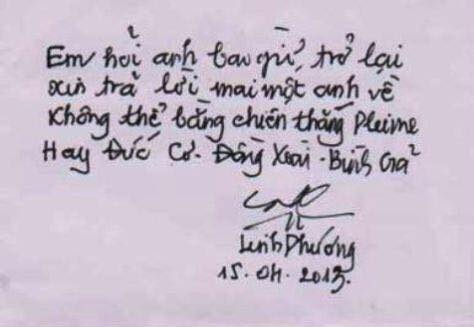 Em hỏi anh bao giờ, trở lại
xin trả lời mai một anh về
Không thể bằng chiến thắng Pleime
Hay Đức Cơ - Đồng Xoài - Bình Giả
Linh Phương
15.04.2013.